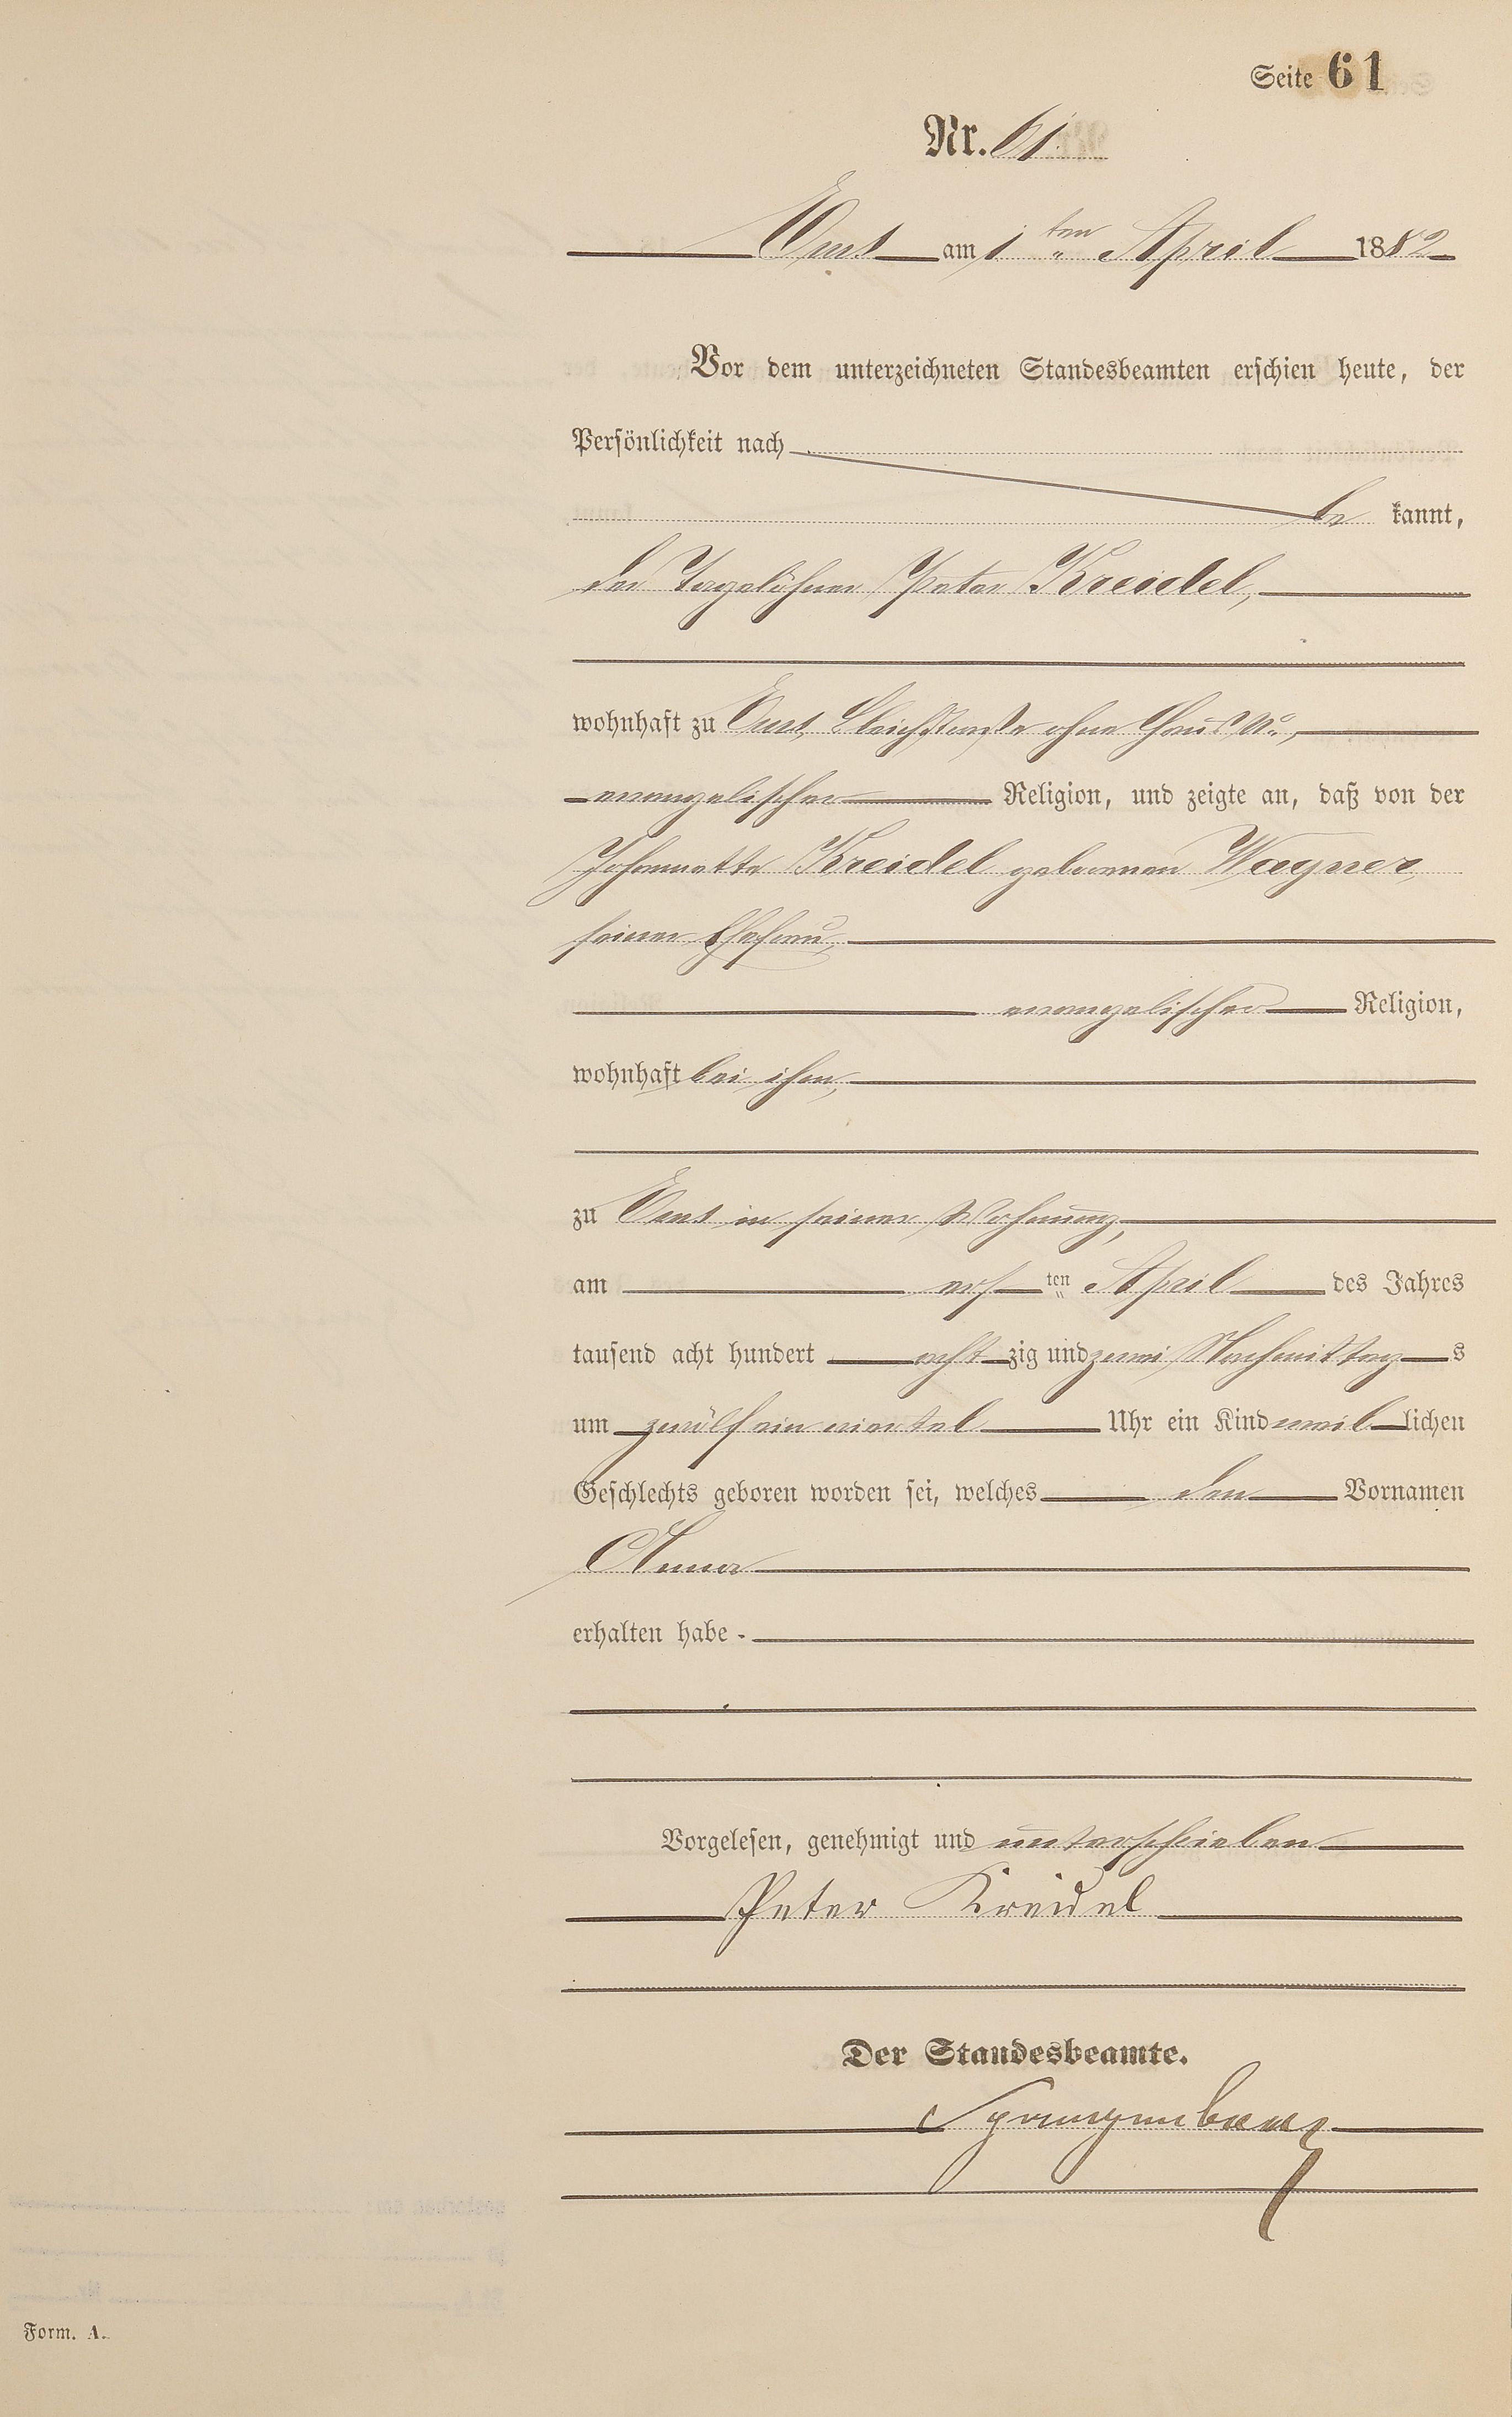 Seite 61
Nr. 61.
Ems am 1ten April 1882
Vor dem unterzeichneten Standesbeamten erschien heute, der
Persönlichkeit nach
be kannt,
der Tagelöhner Peter Kreidel,
wohnhaft zu Ems, Bleichstraße ohne Haus No.,
evangelischer Religion, und zeigte an, daß von der
Johannette Kreidel geborenen Wagner,
seiner Ehefrau,
evangelischer Religion,
wohnhaft bei ihm,
zu Ems in seiner Wohnung,
am ersten April des Jahres
tausend acht hundert achtzig und zwei Nachmittags
um zwölf ein viertel Uhr ein Kind weiblichen
Geschlechts geboren worden sei, welches den Vornamen
Anna
erhalten habe.
Vorgelesen, genehmigt und unterschrieben
Peter Kreidel
Der Standesbeamte.
Form. A.